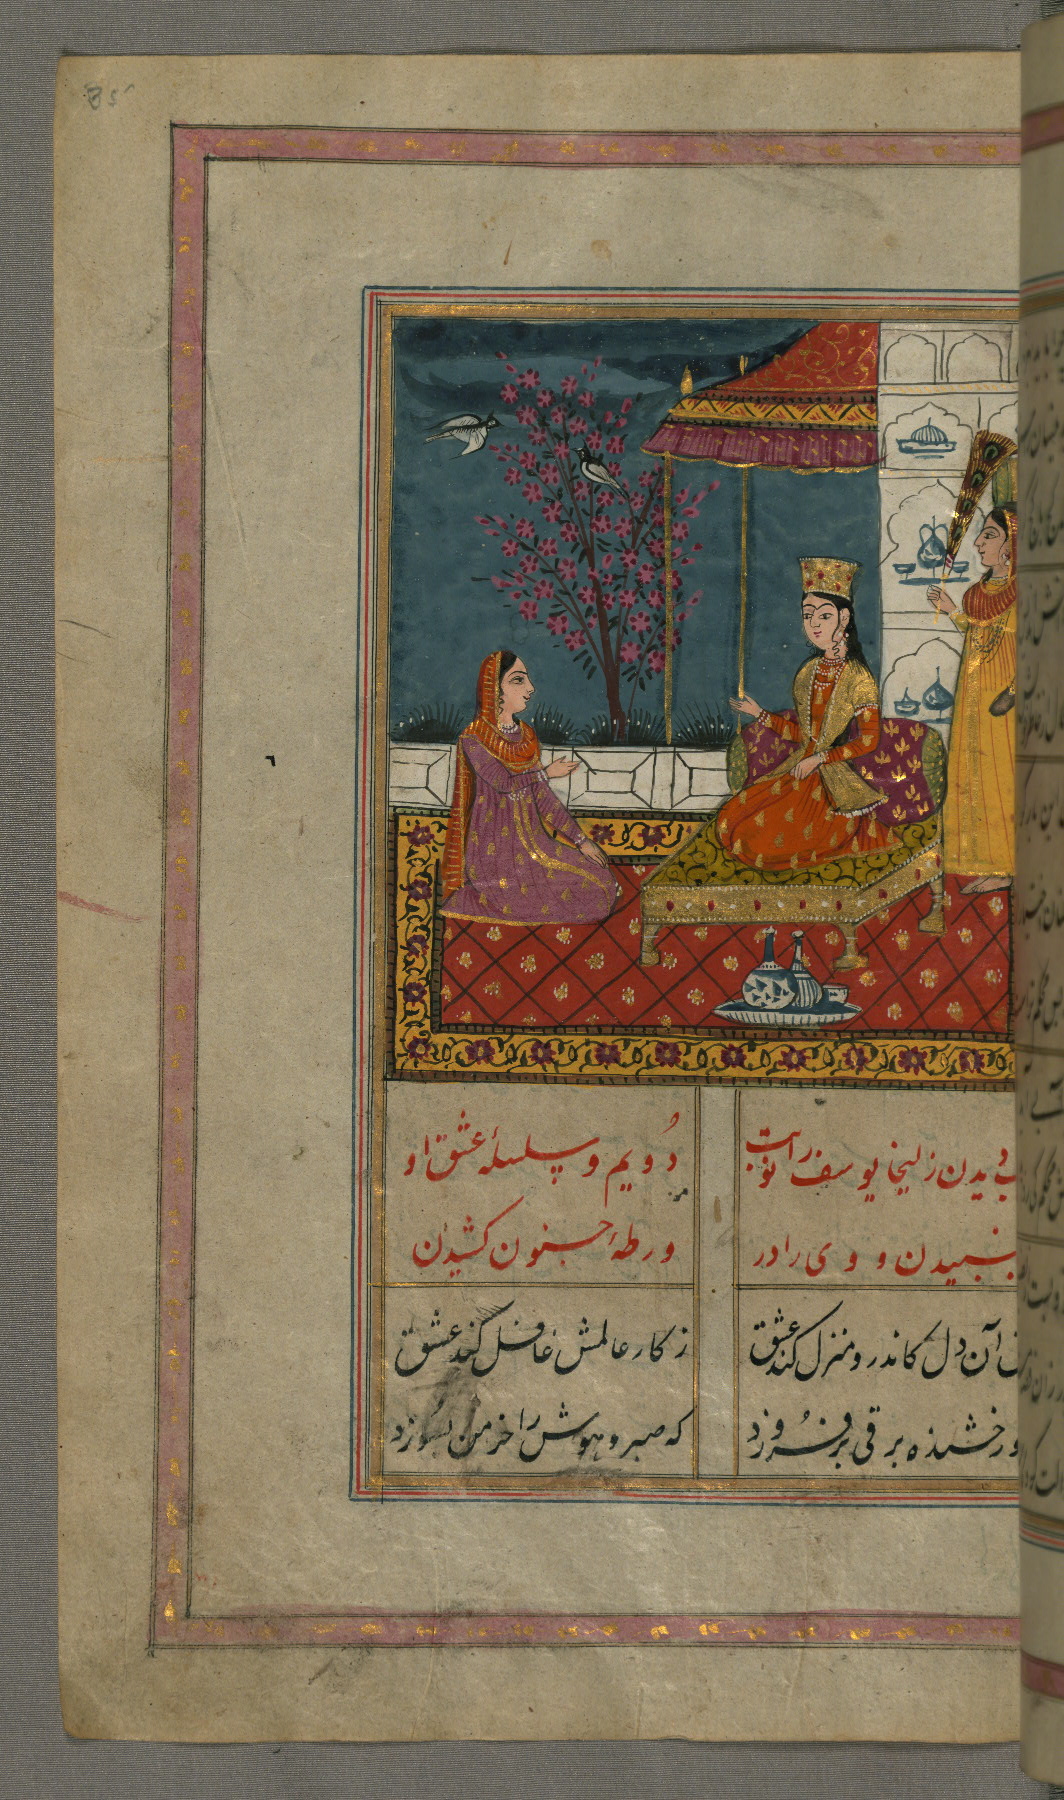 35
دیدن زلیخا یوسف را نوبت دویم و سلسلهٔ عشق او
جنبیدن و وی را در ورطهٔ جنون کشیدن
آن دل کاندرو منزل کند عشق ز کار عالمش غافل کند عشق
درخشنده برقی برفروزد که صبر و هوش را خرمن بسوزد